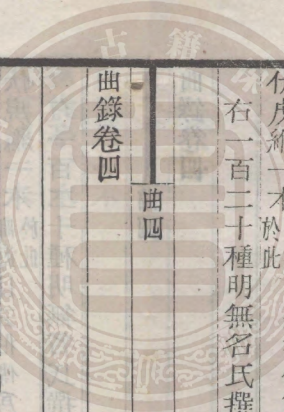 一本於此
右一百二十種明無名氏撰
曲四
曲錄卷四